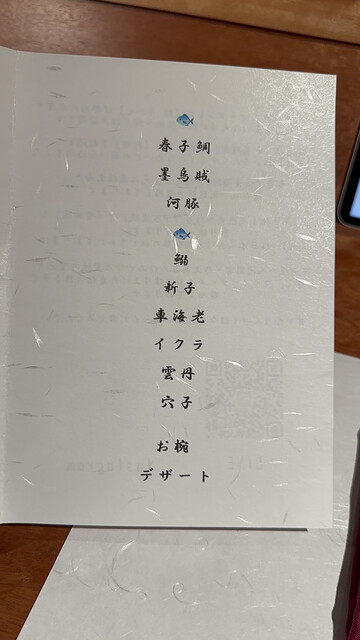 🐟
春子鯛
墨烏賊
河豚
🐟
鰯
新子
車海老
イクラ
雲丹
穴子
お椀
デザート